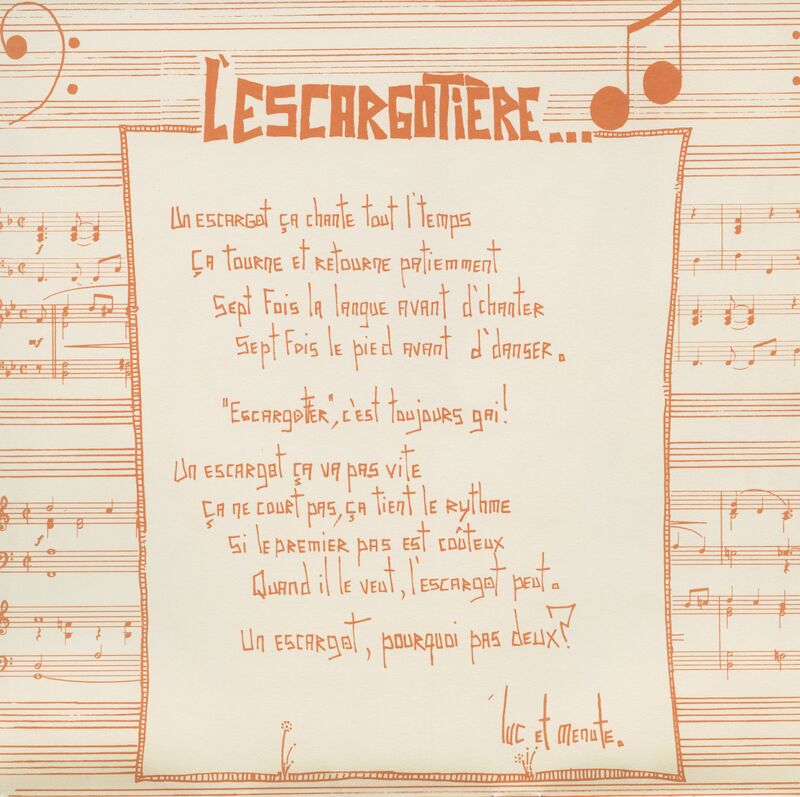 L'ESCARGOTIÈRE...
Un escargot ça chante tout l'temps
Ça tourne et retourne patiemment
Sept fois la langue avant d'chanter
Sept fois le pied avant d'danser.
"Escargotter", c'est toujours gai!
Un escargot ça va pas vite
Ça ne court pas, ça tient le rythme
Si le premier pas est coûteux
Quand il le veut, l'escargot peut.
Un escargot, pourquoi pas deux?
luc et menute.